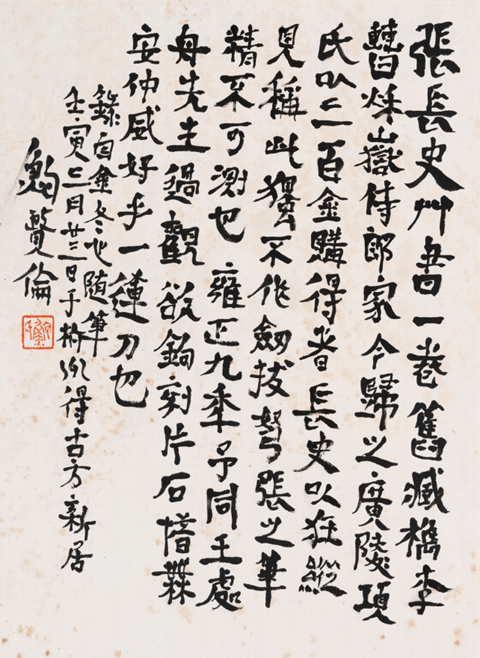 張長史艸書一卷舊臧檇李
曹秌嶽侍郎家今歸之廣陵項
氏以二百金購得者長史以狂縱
見稱此獨不作劒拔弩張之筆
精不可測也雍正九秊予同王處
舟先生過觀欲鉤刻片石惜橆
安仲感好手一運刀也
錄自金冬心隨筆
壬寅二月廿三日于得古方新居
倫